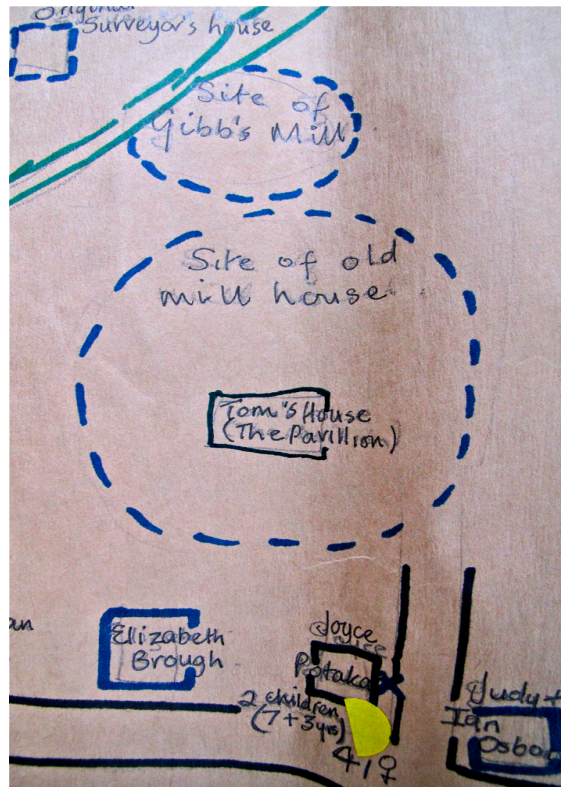 Original
Surveyor's house
Site of
Gibb's Mill
Site of old
mill house
Tom's House
(The Pavillion)
an
Elizabeth
Brough
Joyce
Potaka
2 children
(7 + 3 yrs)
41 ♀
Judy +
Ian
Osbo